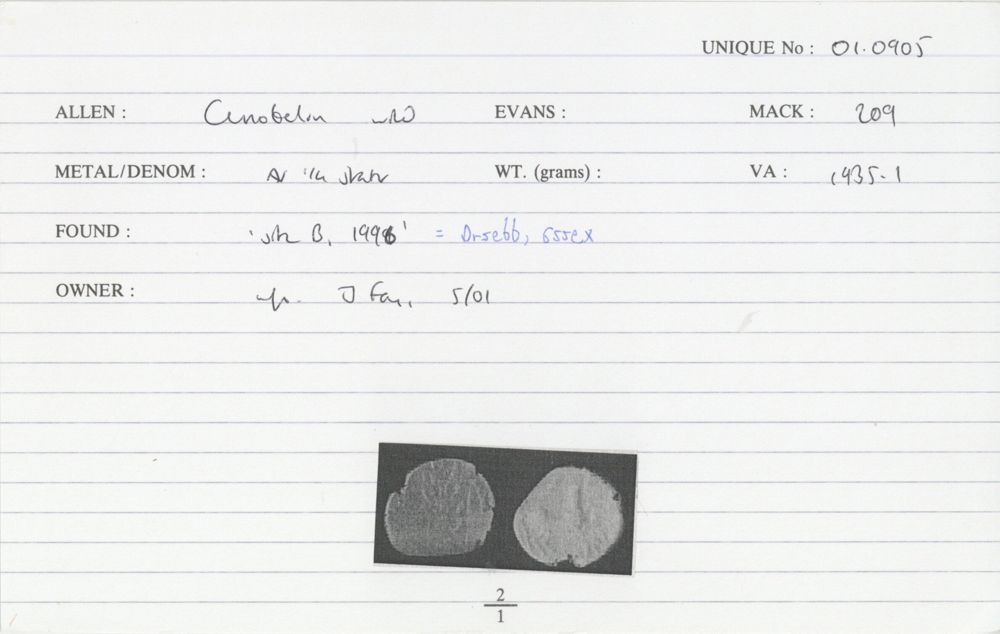 UNIQUE No : 01.0905
ALLEN : Cunobelin EVANS : MACK : 209
METAL/DENOM : AV 1/4 stater WT. (grams) : VA : 1935-1
FOUND : 'site B, 1996' = Drsebb, Essex
OWNER : J Fox, 5/01
2
1